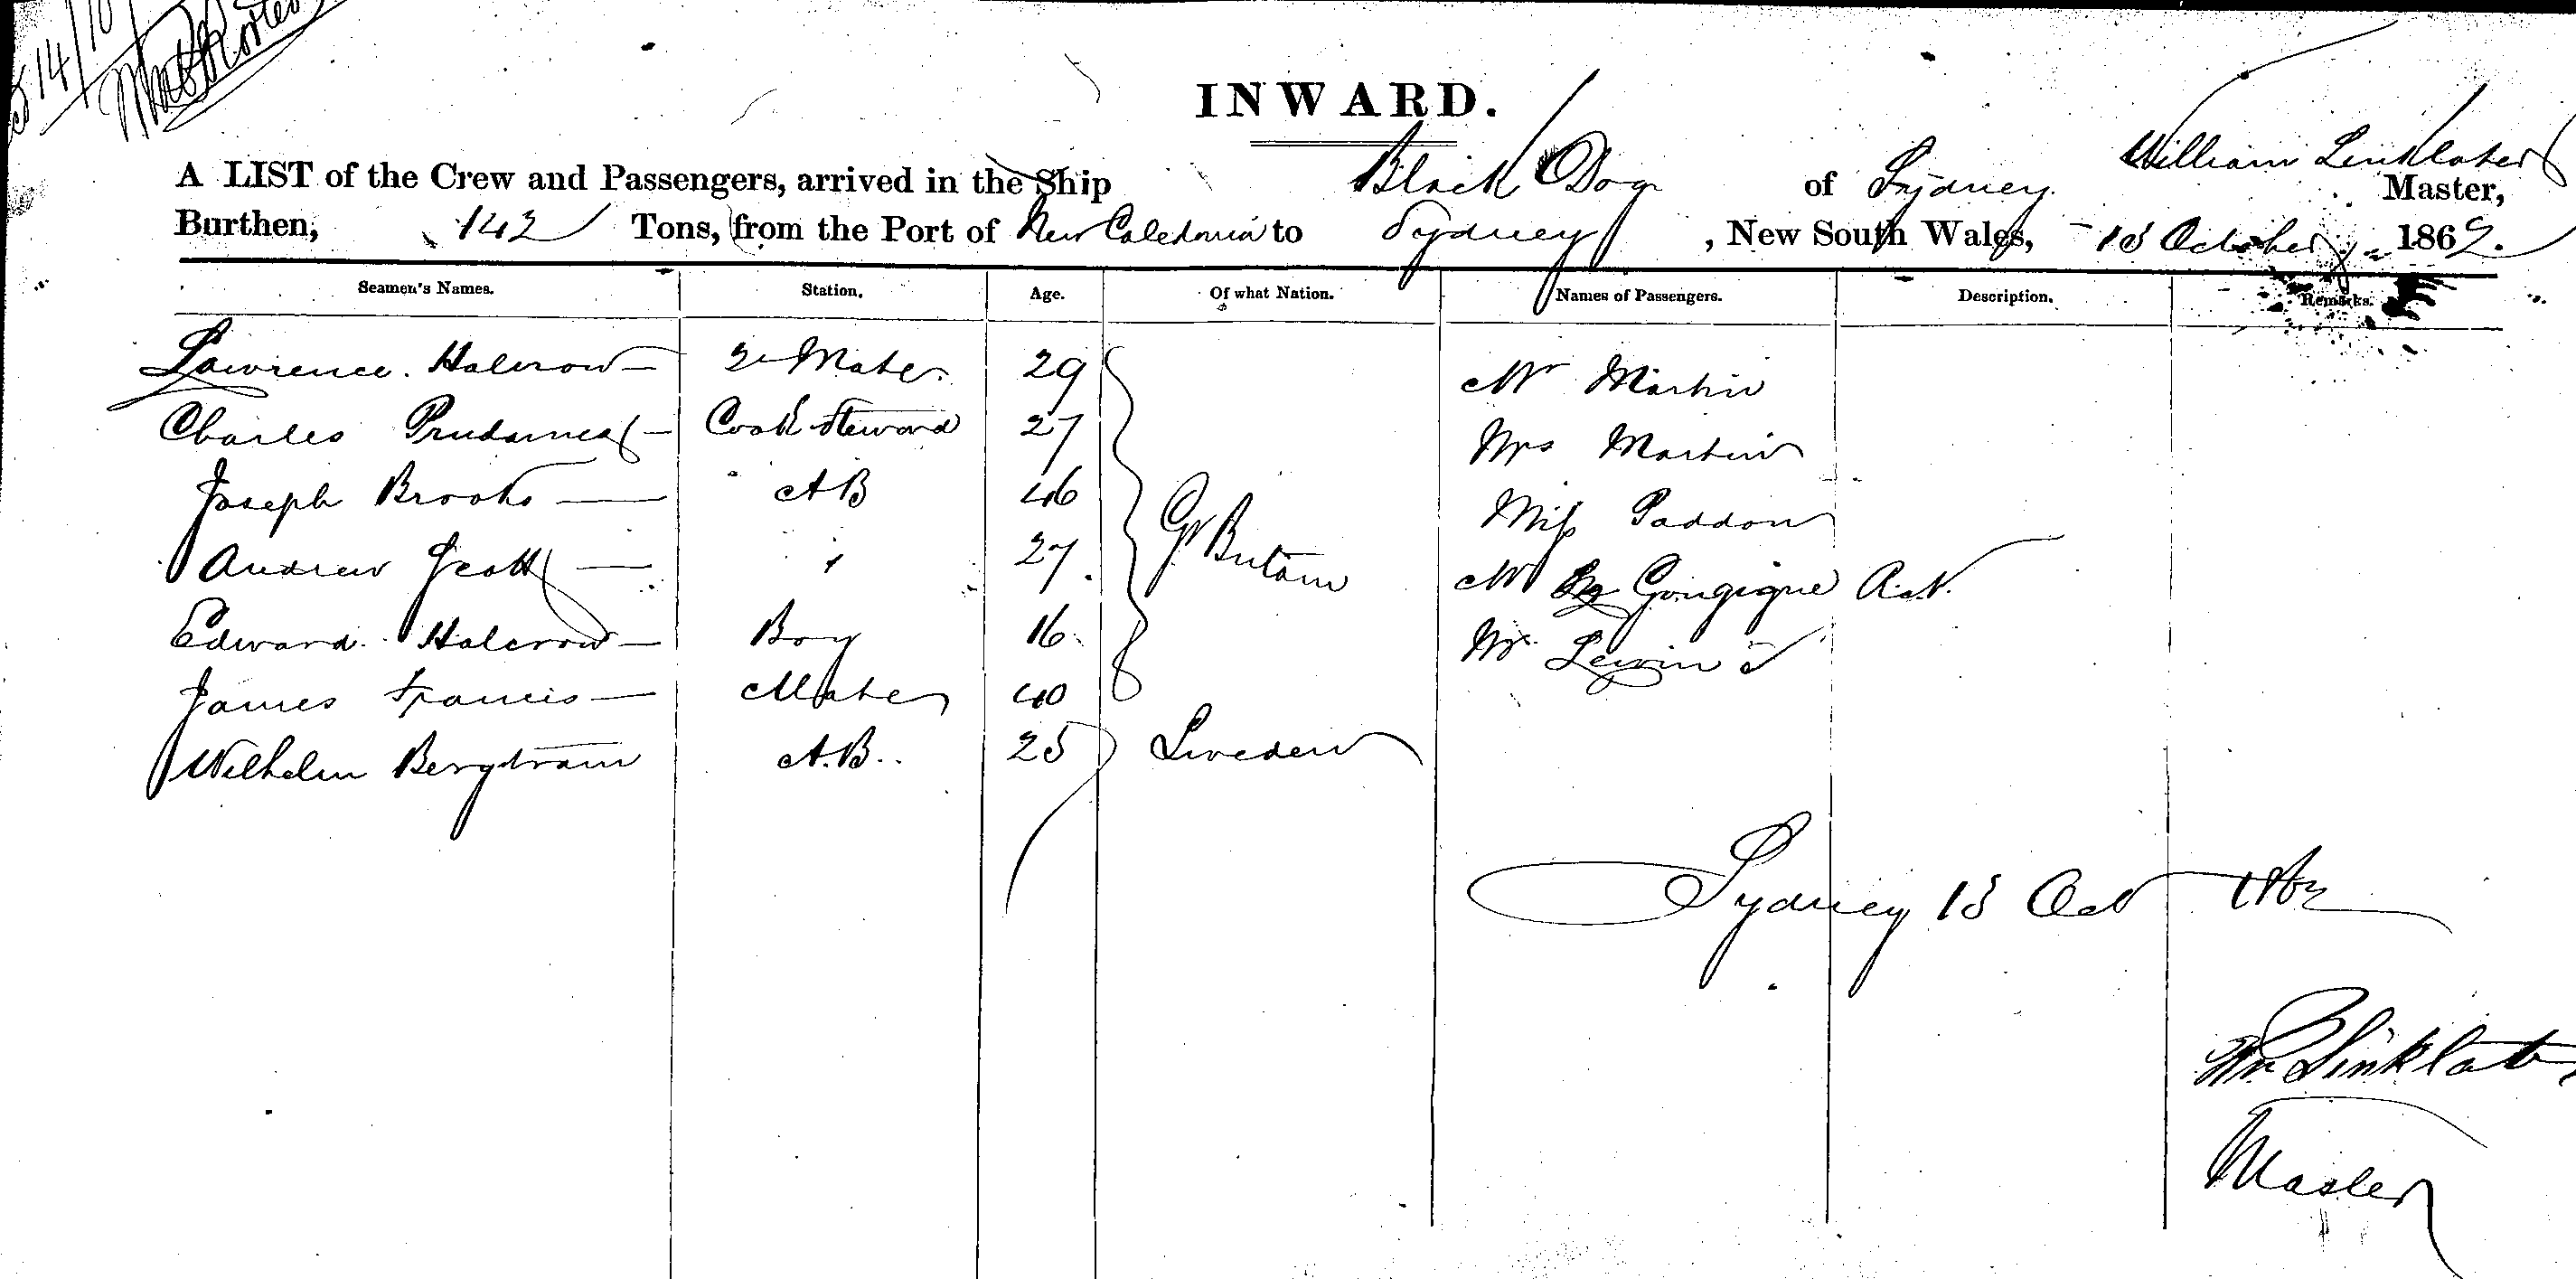 14/10
INWARD.
William Linklater
A LIST of the Crew and Passengers, arrived in the Ship Black Dog of Sydney Master,
Burthen, 142 Tons, from the Port of New Caledonia to Sydney, New South Wales, 13 October 1862.
Seamen's Names. Station. Age. Of what Nation. Names of Passengers. Description. Remarks.
Lawrence Halcrow — 2d Mate 29 Mr Martin
Charles — Cook Steward 27 Mrs Martin
Joseph Brooks — AB 46 Gt Britain Miss Paddon
Andrew Scott — " 27 Mr
Edward Halcrow — Boy 16 Mr Lewin
James Francis — Mate 40
Wilhelm Bergtram A.B. 25 Sweden
Sydney 13 Oct 1862
Wm Linklater
Master